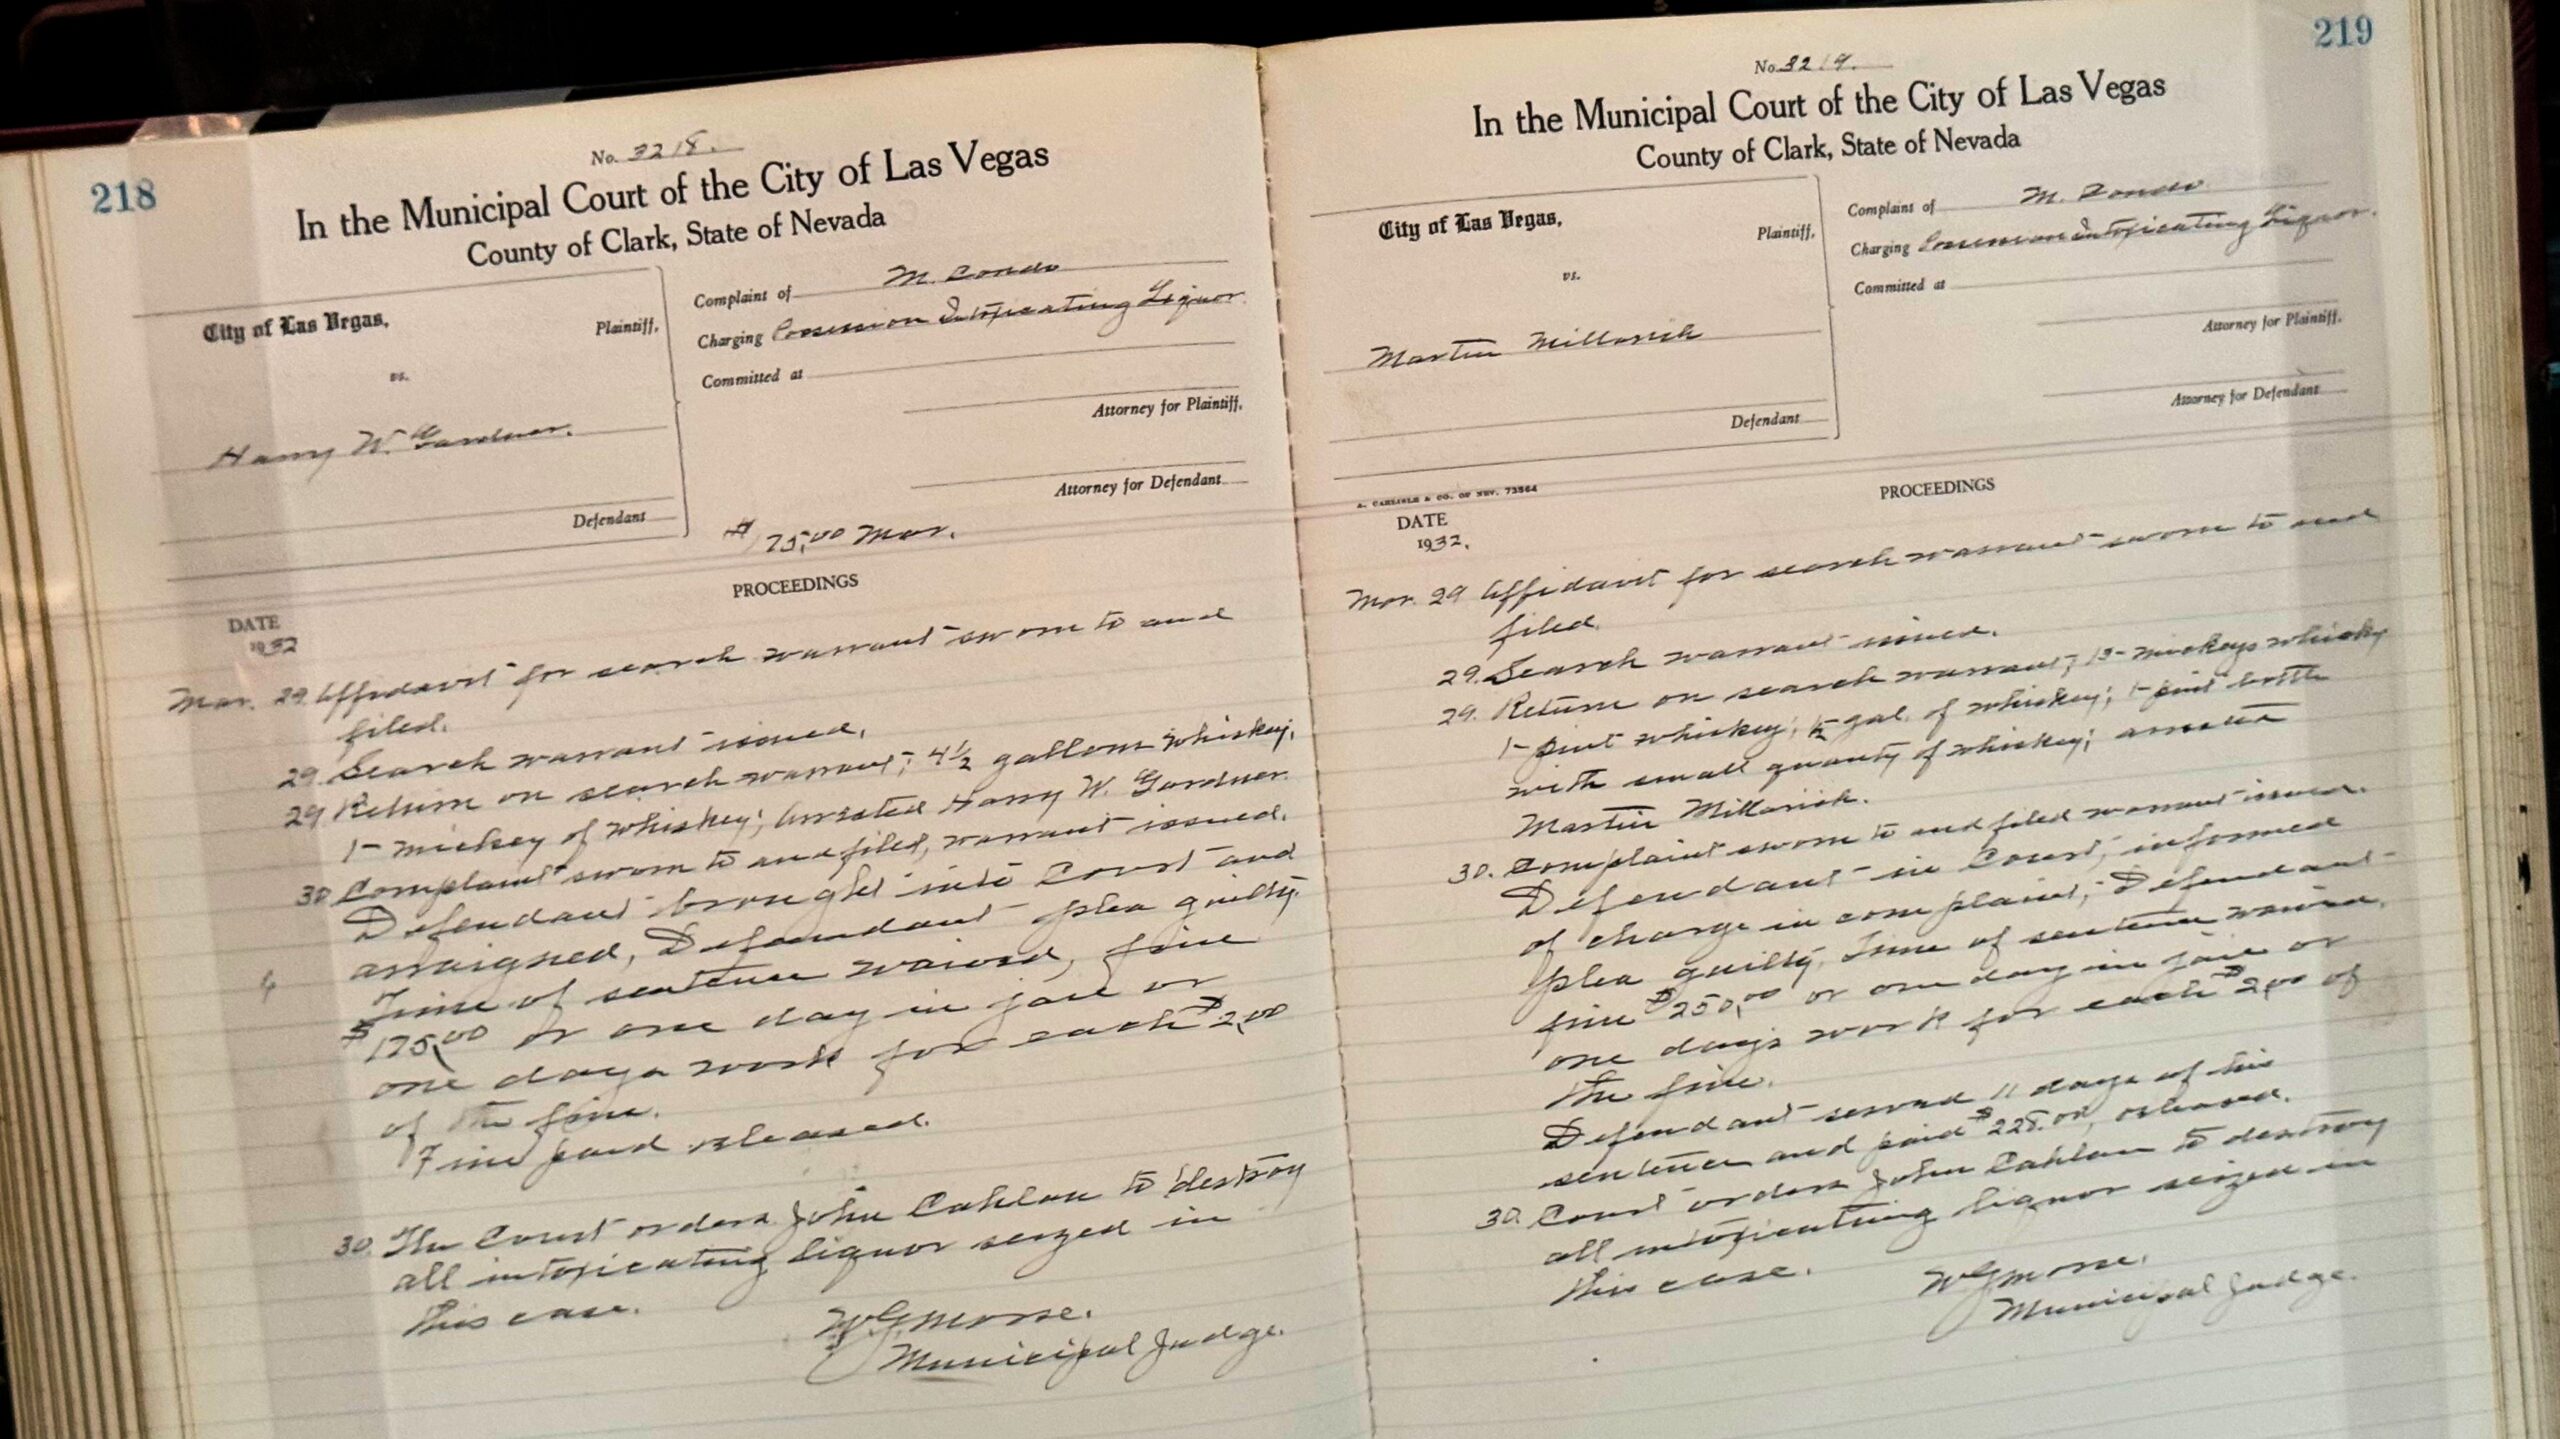 218
No. 3218.
In the Municipal Court of the City of Las Vegas
County of Clark, State of Nevada
City of Las Vegas,
Plaintiff,
vs.
Harry W. Gardner.
Defendant
Complaint of M. Condo
Charging Possession Intoxicating Liquor
Committed at
Attorney for Plaintiff,
Attorney for Defendant
$175.00 Mar.
PROCEEDINGS
DATE
1932
Mar. 29 Affidavit for search warrant sworn to and
filed.
29. Search warrant issued.
29 Return on search warrant; 4½ gallons whiskey,
1- mickey of whiskey; Arrested Harry W. Gardner
30 Complaint sworn to and filed, warrant issued.
Defendant brought into Court and
arraigned, Defendant plea guilty.
Time of sentence waived, fine
$175.00 or one day in jail or
one days work for each $2.00
of the fine.
Fine paid released.
30. The Court orders John Cahlan to destroy
all intoxicating liquor seized in
this case.
W G Morse.
Municipal Judge.
219
No. 3219.
In the Municipal Court of the City of Las Vegas
County of Clark, State of Nevada
City of Las Vegas,
Plaintiff,
vs.
Martin Millovich
Defendant
Complaint of M. Condo
Charging Possession Intoxicating Liquor.
Committed at
Attorney for Plaintiff,
Attorney for Defendant
A. CARLISLE & CO. OF NEV. 73564
PROCEEDINGS
DATE
1932.
Mar. 29 Affidavit for search warrant sworn to and
filed.
29. Search warrant issued.
29. Return on search warrant; mickeys whisky
1- pint whiskey; ½ gal. of whiskey; 1- pint bottle
with small quanty of whiskey; arrested
Martin Millovich.
30. Complaint sworn to and filed warrant issued.
Defendant in Court, informed
of charge in complaint; Defendant
plea guilty. Time of sentence waived.
fine $250.00 or one day in jail or
one days work for each $2.00 of
the fine.
Defendant served 11 days of his
sentence and paid $228.00, released.
30. Court orders John Cahlan to destroy
all intoxicating liquor seized in
this case.
W G Morse.
Municipal Judge.